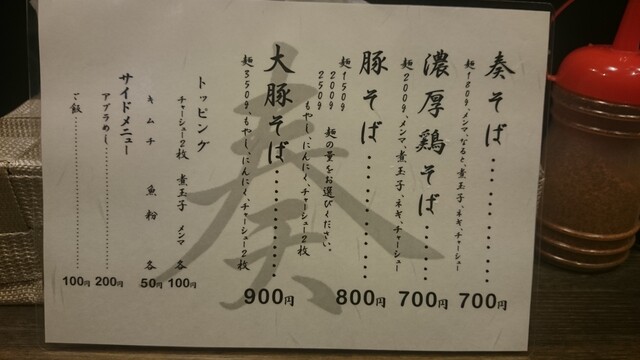 奏そば……………700円
麺180g、メンマ、なると、煮玉子、ネギ、チャーシュー
濃厚鶏そば………700円
麺200g、メンマ、煮玉子、ネギ、チャーシュー
豚そば……………800円
麺150g
200g 麺の量をお選びください。
250g
もやし、にんにく、チャーシュー2枚
大豚そば…………900円
麺350g、もやし、にんにく、チャーシュー2枚
トッピング
チャーシュー2枚 煮玉子 メンマ 各100円
キムチ 魚粉 各50円
サイドメニュー
アブラめし………200円
ご飯………………100円
奏